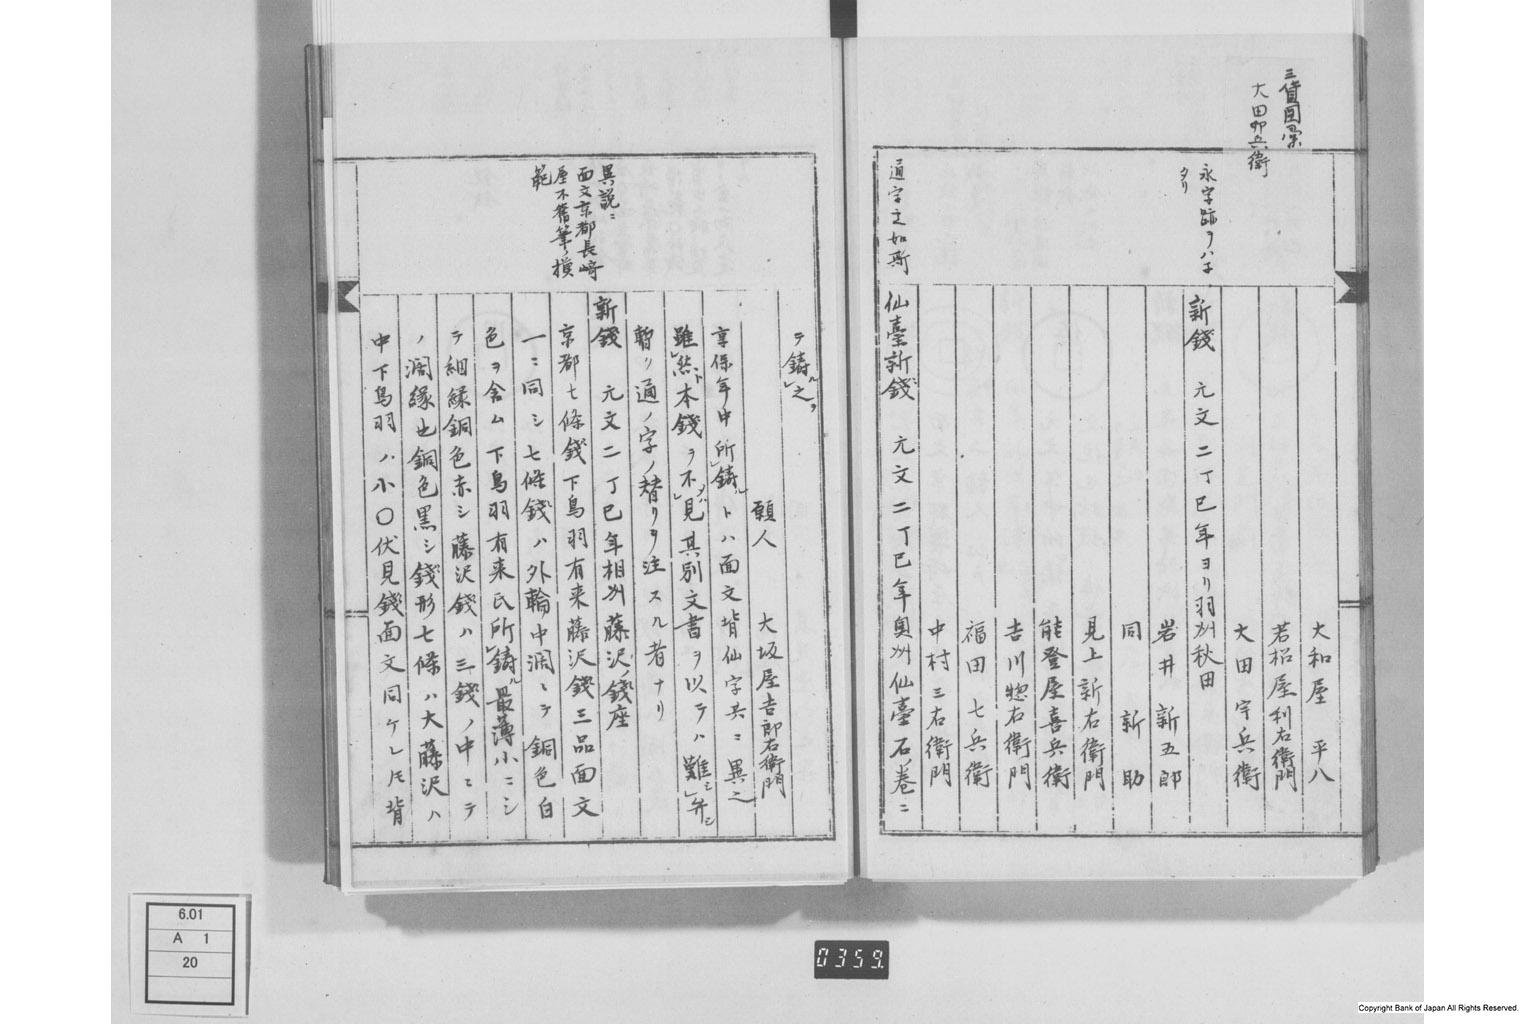 三貨図彙
大田卯兵衛
永字跡ヲハネ
タリ
通字之如斯
大和屋 平八
若松屋利右衛門
大田宇兵衛
新錢 元文二丁巳年ヨリ羽州秋田
岩井新五郎
同 新助
見上新右衛門
能登屋喜兵衛
吉川惣右衛門
福田七兵衛
中村三右衛門
仙臺新錢 元文二丁巳年奥州仙臺石巻ニ
異説ニ
面文京都長崎
範
テ鋳ル之ヲ
願人 大坂屋吉郎右衛門
享保年中所鋳ルトハ面文背仙字共ニ異之
雖然ト本錢ヲ不見其別文書ヲ以テハ難シ弁シ
暫リ通ノ字ノ替リヲ注スル者ナリ
新錢 元文二丁巳年相州藤沢ノ錢座
京都七條錢下鳥羽有来藤沢錢三品面文
一ニ同シ七條錢ハ外輪中濶ニテ銅色白
色ヲ含ム下鳥羽有来氏所鋳ル最薄小ニシ
テ細縁銅色赤シ藤沢錢ハ三錢ノ中ニテ
ノ濶縁也銅色黒シ錢形七條ハ大藤沢ハ
中下鳥羽ハ小〇伏見錢面文同ケレ𪜈背
6.01
A 1
20
0359.
Copyright Bank of Japan All Rights Reserved.